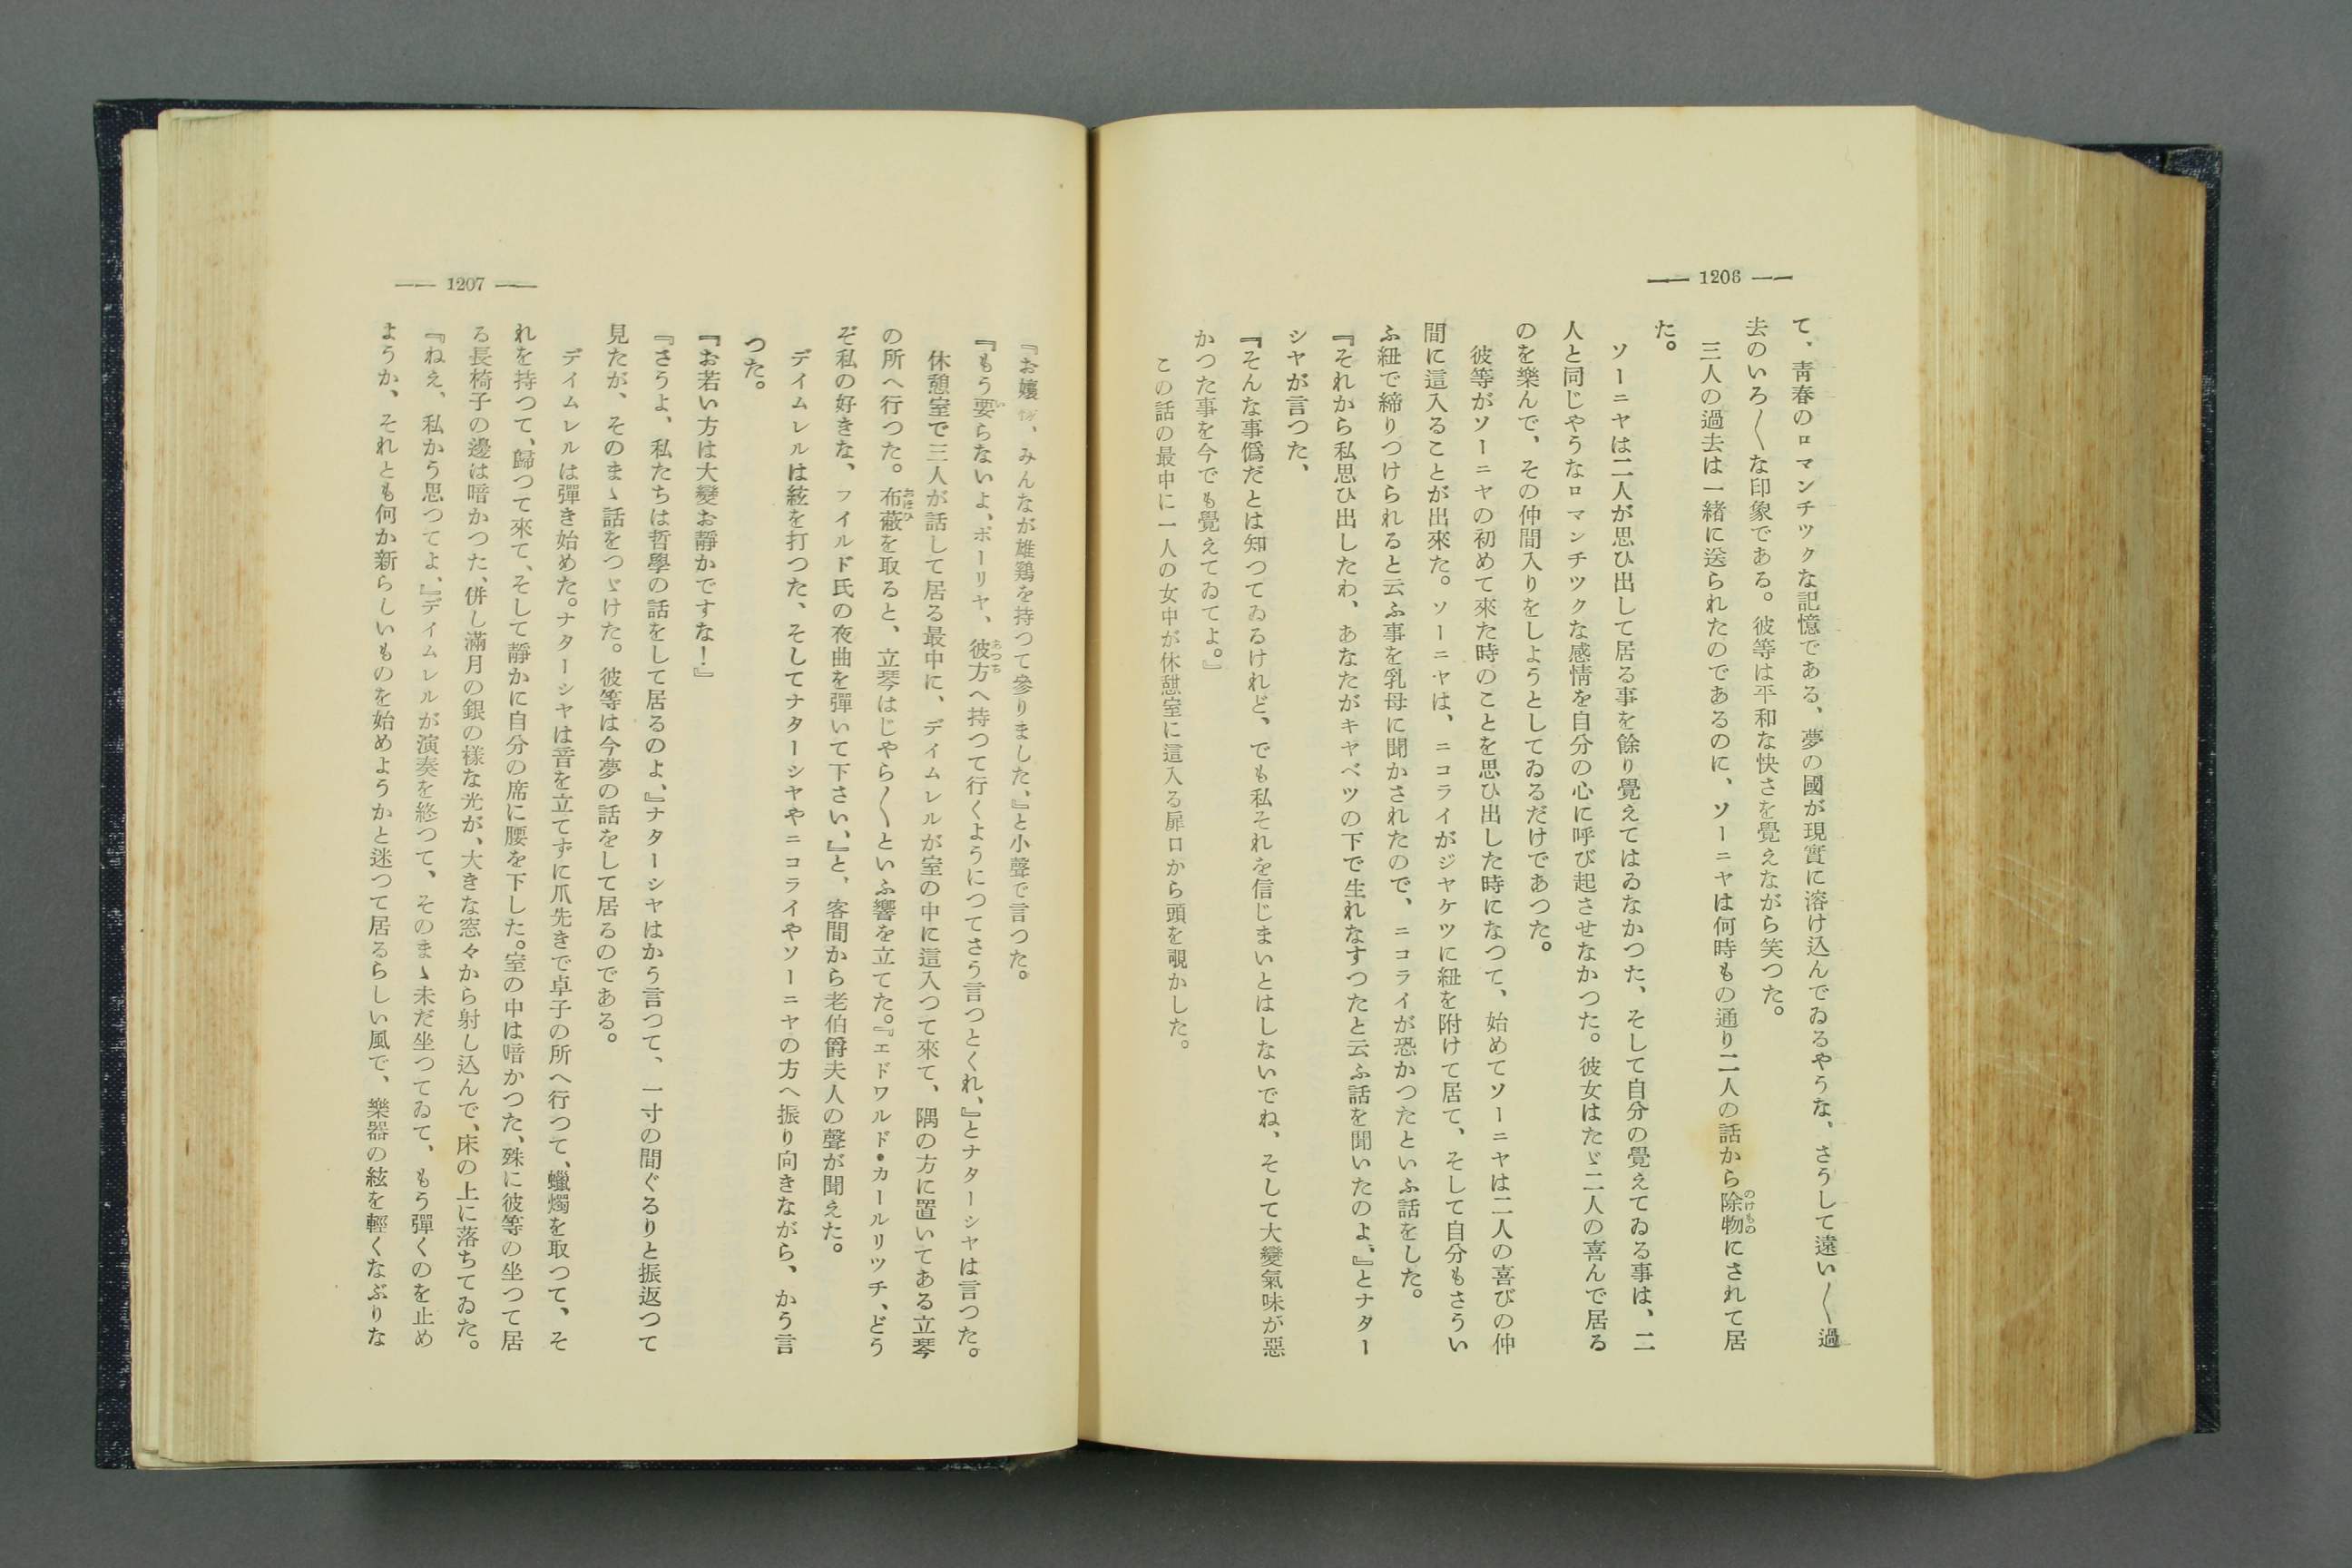 — 1206 —
て、靑春のロマンチツクな記憶である、夢の國が現實に溶け込んでゐるやうな、さうして遠い〱過
去のいろ〱な印象である。彼等は平和な快さを覺えながら笑つた。
三人の過去は一緖に送られたのであるのに、ソーニヤは何時もの通り二人の話から除物にされて居
のけもの
た。
ソーニヤは二人が思ひ出して居る事を餘り覺えてはゐなかつた、そして自分の覺えてゐる事は、二
人と同じやうなロマンチツクな感情を自分の心に呼び起させなかつた。彼女はたゞ二人の喜んで居る
のを樂んで、その仲間入りをしようとしてゐるだけであつた。
彼等がソーニヤの初めて來た時のことを思ひ出した時になつて、始めてソーニヤは二人の喜びの仲
間に這入ることが出來た。ソーニヤは、ニコライがジヤケツに紐を附けて居て、そして自分もさうい
ふ紐で締りつけられると云ふ事を乳母に聞かされたので、ニコライが恐かつたといふ話をした。
『それから私思ひ出したわ、あなたがキヤベツの下で生れなすつたと云ふ話を聞いたのよ、』とナター
シヤが言つた、
『そんな事僞だとは知つてゐるけれど、でも私それを信じまいとはしないでね、そして大變氣味が惡
かつた事を今でも覺えてゐてよ。』
この話の最中に一人の女中が休憩室に這入る扉口から頭を覗かした。
— 1207 —
『お孃 、みんなが雄鷄を持つて參りました、』と小聲で言つた。
『もう要らないよ、ポーリヤ、彼方へ持つて行くようにつてさう言つとくれ、』とナターシヤは言つた。
い
あつち
休憩室で三人が話して居る最中に、デイムレルが室の中に這入つて來て、隅の方に置いてある立琴
の所へ行つた。布蔽を取ると、立琴はじやら〱といふ響を立てた。『エドワルド・カールリツチ、どう
おほひ
ぞ私の好きな、フイルド氏の夜曲を彈いて下さい、』と、客間から老伯爵夫人の聲が聞えた。
デイムレルは絃を打つた、そしてナターシヤやニコライやソーニヤの方へ振り向きながら、かう言
つた。
『お若い方は大變お靜かですな！』
『さうよ、私たちは哲學の話をして居るのよ、』ナターシヤはかう言つて、一寸の間ぐるりと振返つて
見たが、そのまゝ話をつゞけた。彼等は今夢の話をして居るのである。
デイムレルは彈き始めた。ナターシヤは音を立てずに爪先きで卓子の所へ行つて、蠟燭を取つて、そ
れを持つて、歸つて來て、そして靜かに自分の席に腰を下した。室の中は暗かつた、殊に彼等の坐つて居
る長椅子の邊は暗かつた、倂し滿月の銀の樣な光が、大きな窓々から射し込んで、床の上に落ちてゐた。
『ねえ、私かう思つてよ、』デイムレルが演奏を終つて、そのまゝ未だ坐つてゐて、もう彈くのを止め
ようか、それとも何か新らしいものを始めようかと迷つて居るらしい風で、樂器の絃を輕くなぶりな